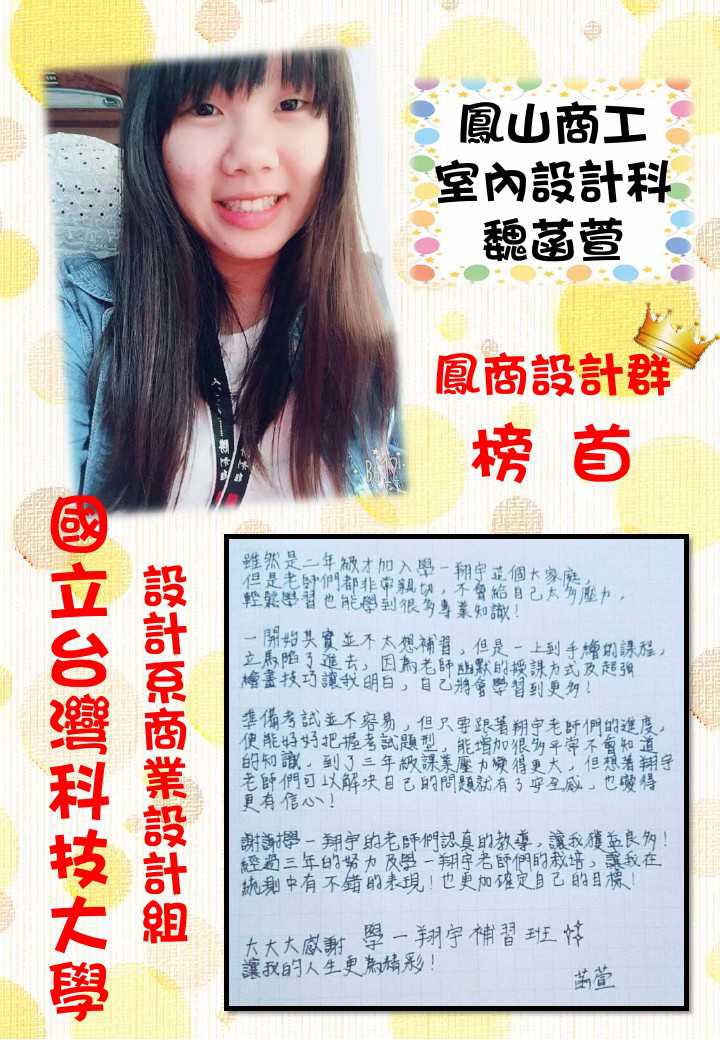 鳳山商工
室內設計科
魏菡萱
鳳商設計群
榜首
國立台灣科技大學
設計系商業設計組
雖然是二年級才加入學一翔宇這個大家庭，
但是老師們都非常親切，不會給自己太多壓力，
輕鬆學習也能學到很多專業知識！
一開始其實並不太想補習，但是一上到手繪的課程，
立馬陷了進去，因為老師幽默的授課方式及超強
繪畫技巧讓我明白，自己將會學習到更多！
準備考試並不容易，但只要跟著翔宇老師們的進度，
便能好好把握考試題型，能增加很多平常不會知道
的知識，到了三年級課業壓力變得更大，但想著翔宇
老師們可以解決自己的問題就有了安全感，也變得
更有信心！
謝謝學一翔宇的老師們認真的教導，讓我獲益良多！
經過三年的努力及學一翔宇老師們的栽培，讓我在
統測中有不錯的表現！也更加確定自己的目標！
大大大感謝 學一翔宇補習班
讓我的人生更為精彩！
菡萱